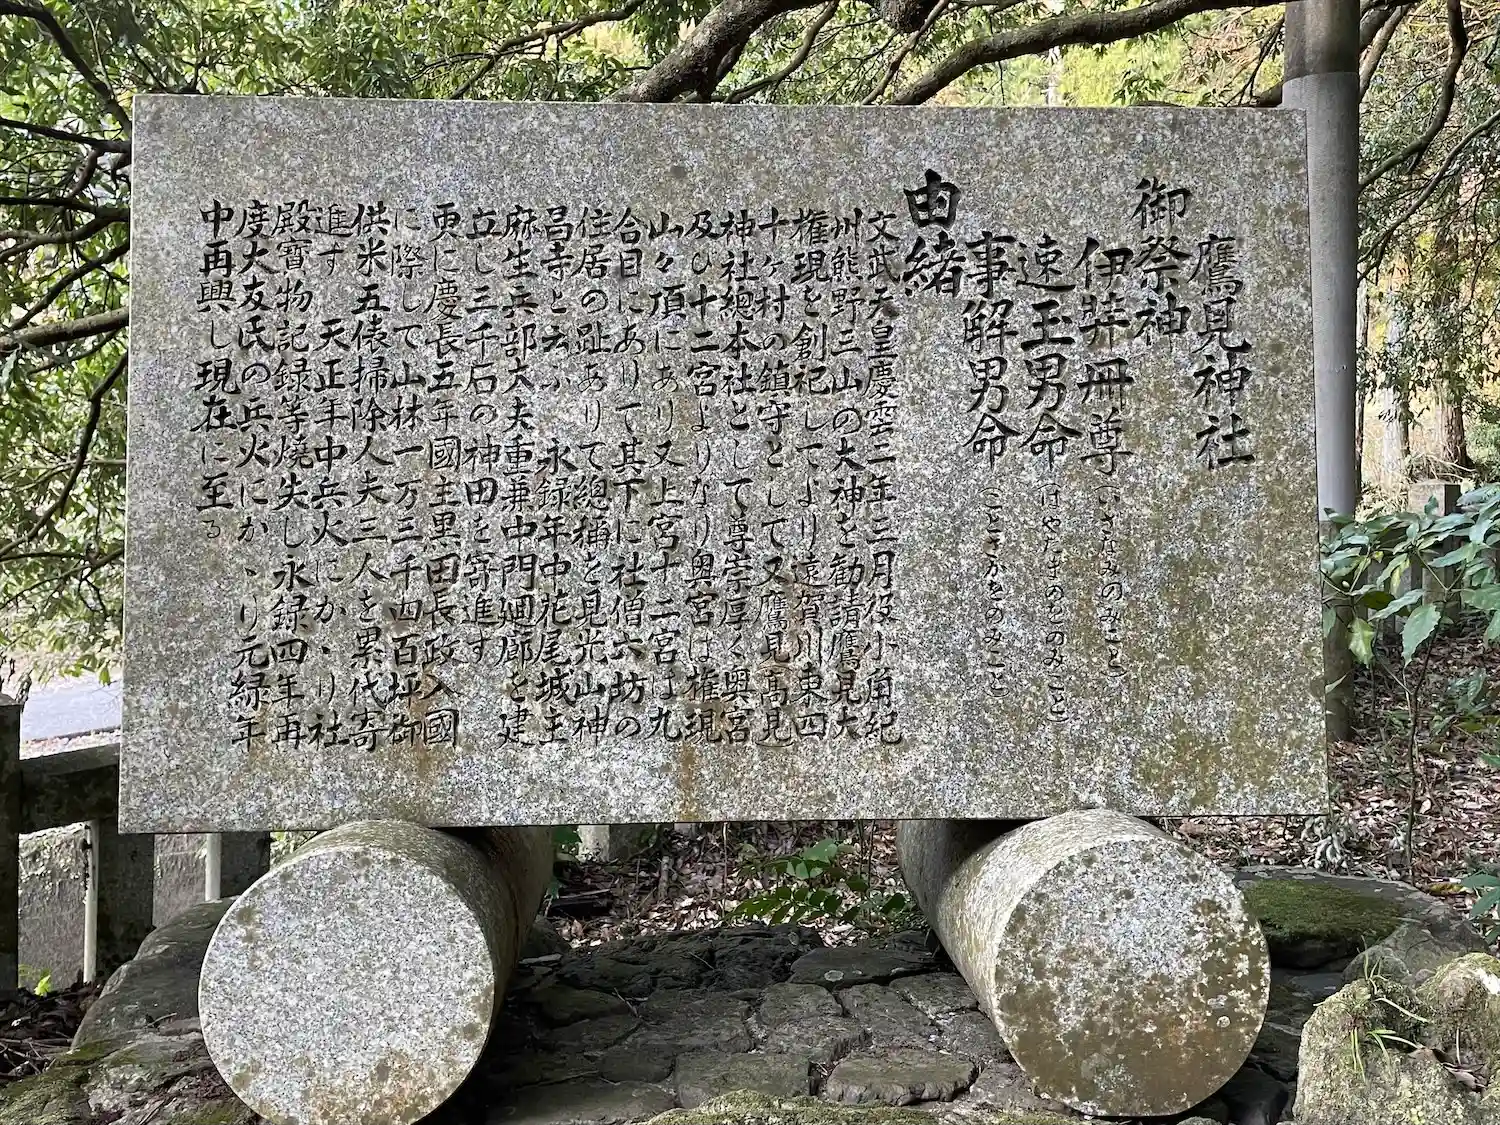 鷹見神社
御祭神
伊弉冊尊(いざなみのみこと)
速玉男命(はやたまのをのみこと)
事解男命(ことさかをのみこと)
由緒
文武天皇慶雲二年三月役小角紀
州熊野三山の大神を勧請鷹見大
権現を創祀してより遠賀川東四
十ヶ村の鎮守として又鷹見(高見)
神社總本社として尊崇厚く奥宮
及ひ十二宮よりなり奥宮は権現
山々頂にあり又上宮十二宮は九
合目にありて其下に社僧六坊の
住居の趾ありて總稱を見光山神
昌寺と云ふ 永録年中花尾城主
麻生兵部大夫重兼中門廻廊を建
立し三千石の神田を寄進す
更に慶長五年國主黒田長政入國
に際して山林一万三千四百坪御
供米五俵掃除人夫三人を累代寄
進す 天正年中兵火にかゝり社
殿寶物記録等焼失し永録四年再
度大友氏の兵火にかゝり元緑年
中再興し現在に至る